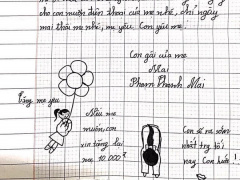 cho con mượn điện thoại của mẹ nhé, chỉ ngày
mai thôi mẹ nhé, mẹ yêu. Con yêu mẹ!
Con gái của mẹ
Mai
Phạm Thanh Mai
Tặng mẹ yêu
Nếu mẹ
muốn con
xin tặng lại
mẹ 10.000đ
Con sẽ ra sớm
nhất trg tối
nay Con hứa!